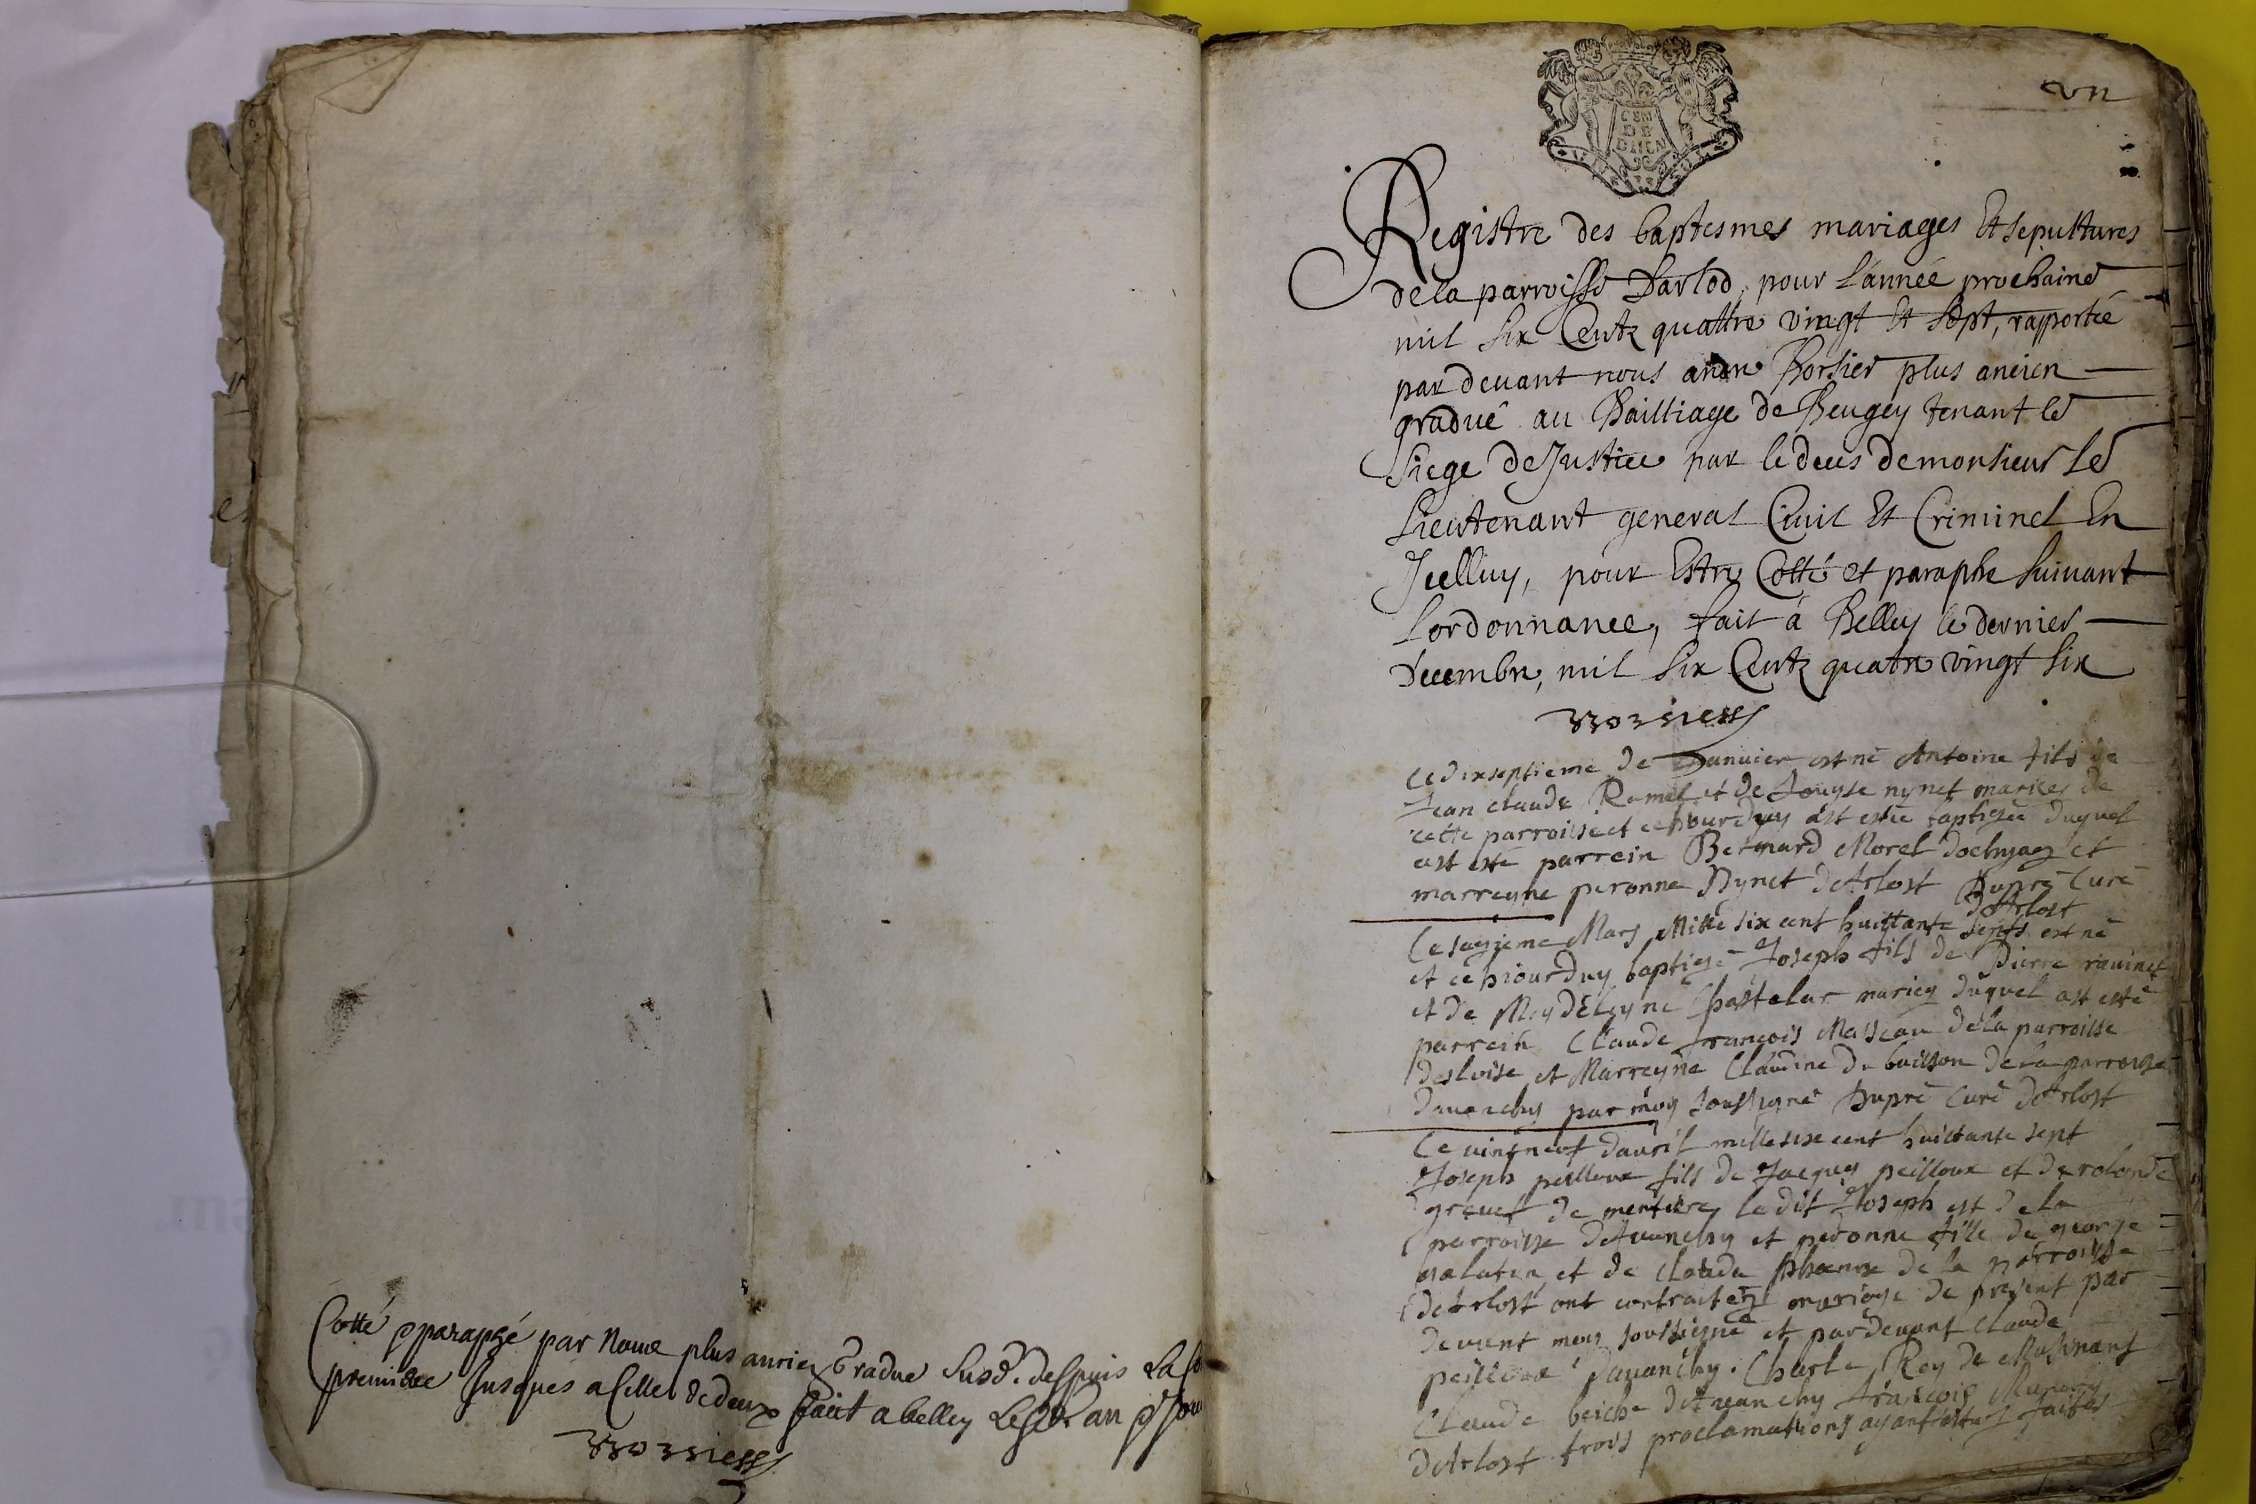 Cotté & parapgé par Nous plus ancien Gradué susd. despuis La
premiere Jusques a Celle de deux fait a belley Les an & Jour
vn
Registre des baptesmes mariages Et sepultures
de la parroisse Darlod, pour L'année prochaine
mil six Centz quattre vingt Et sept, rapporté
par devant nous Borsier plus ancien
gradué au Bailliage de Beugey tenant le
siege de Justice par le deces de monsieur Le
Lieutenant general Civil Et Criminel En
Jcelluy, pour Estre Cotté et paraphe suivant
Lordonnance, fait à Belley le dernier
decembre, mil six Centz quatre vingt six
Ce dixseptieme de Januier est né Antoine fils de
Jean claude Ramel et de Louyse nynet mariez de
cette parroisse et cejhourdhuy est esté baptisée duquel
est esté parrein Bernard Morel et
marreyne peronne Nynet d'Arlost Dupré Curé
d'Arlost
Ce seyzieme Mars Mille six cent huittante sept est né
et cejhiourduy baptizé Joseph fils de Pierre rauinet
et de Meydeleyne Chastelar mariez duquel est esté
parrein Claude francois Masseau de la parroisse
desloise et Marreyne Claudine du buisson de la parroisse
par moy soussigné Dupré Curé d'Arlost
Ce vintneuf dauril mille sixe cent huictante sept
Joseph peilloux fils de Jacques peilloux et de rolande
greuet de le dit Joseph est de la
parroisse d'Auanchy et peronne fille de george
galatin et de Clauda de la parroisse
de Arlost ont contracte mariage de present par
deuant moy soussigné et pardeuant Claude
peilloux d'auanchy. Charle Rey de
Claude d'Auanchy francois
d'Arlost trois proclamations ayant estes faites